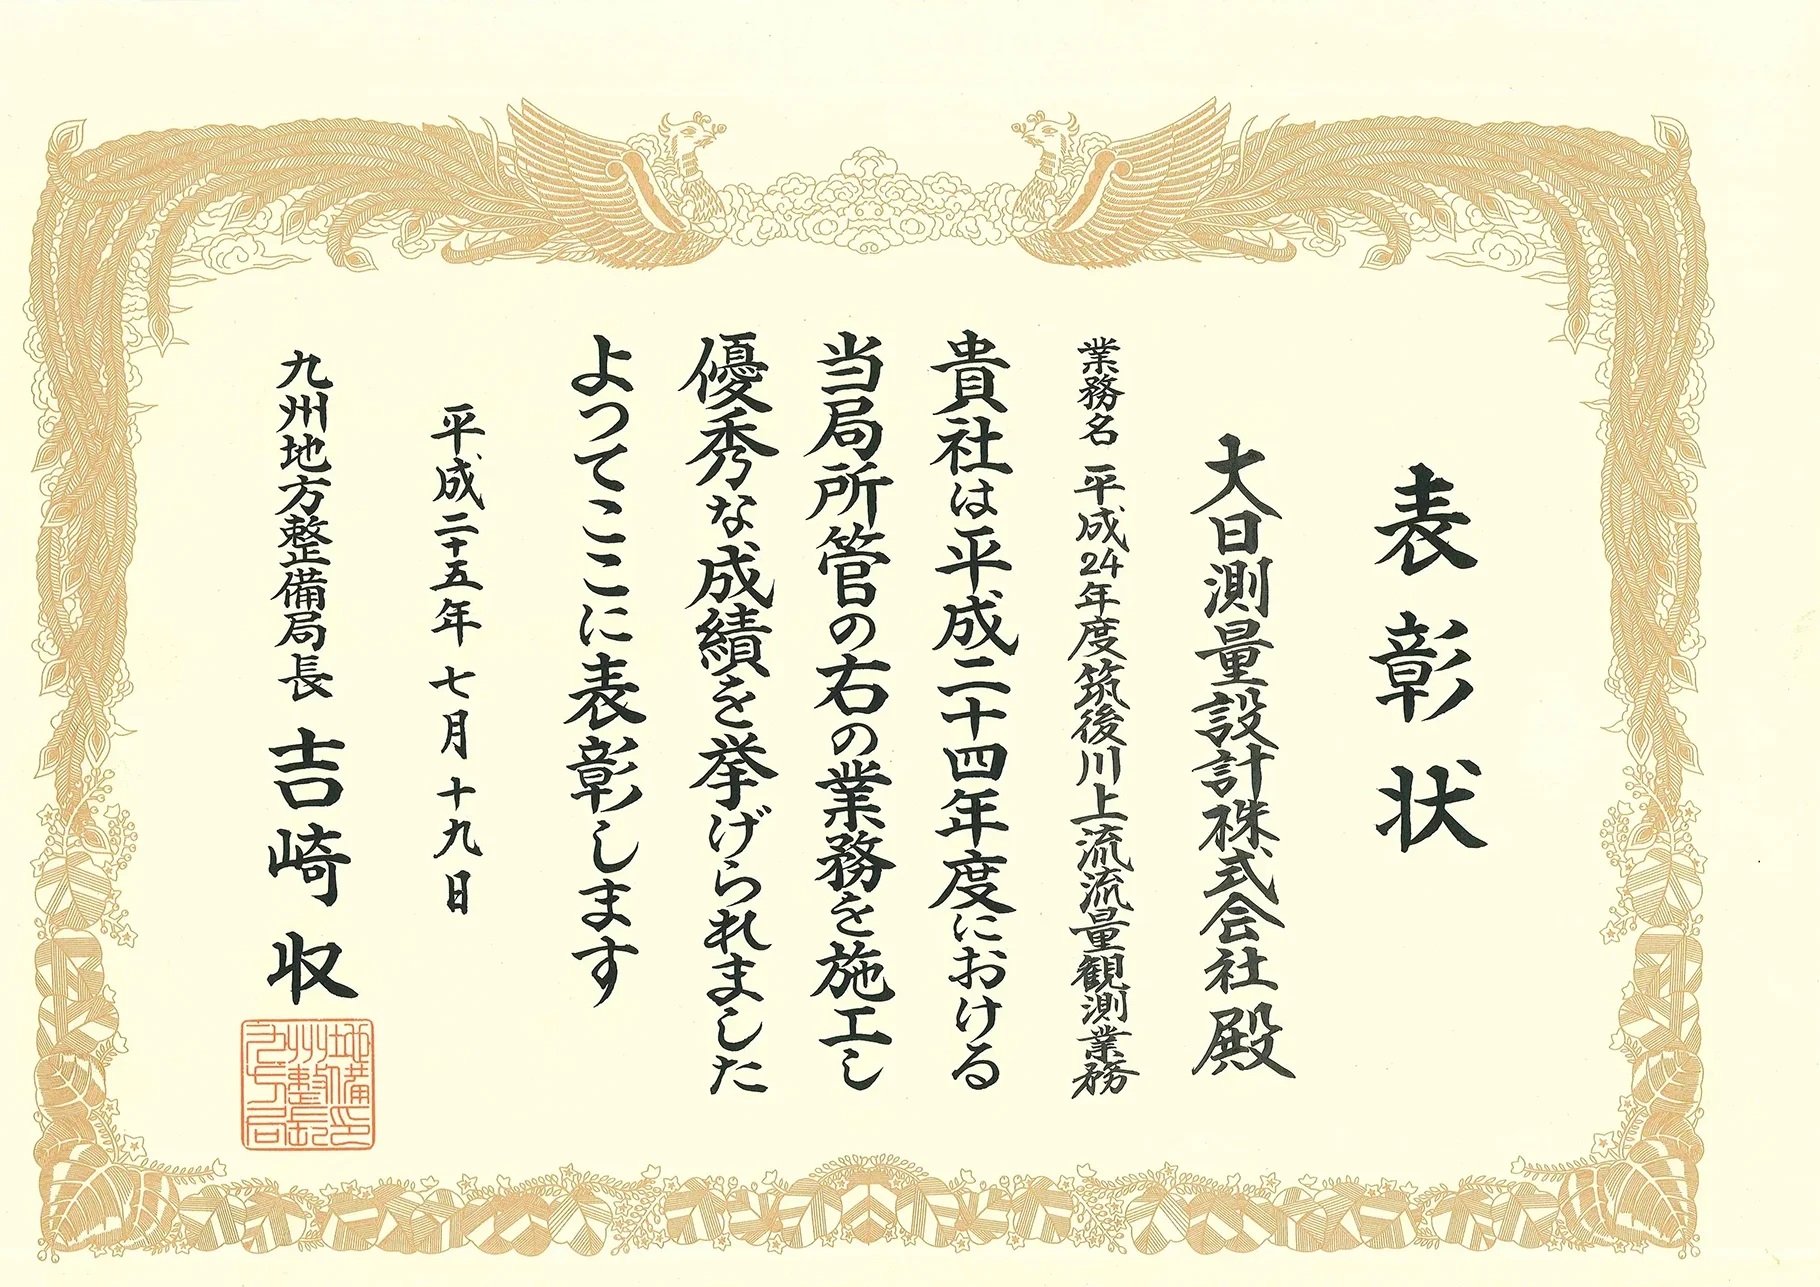 表彰状
大日測量設計株式会社殿
業務名 平成24年度筑後川上流流量観測業務
貴社は平成二十四年度における
当局所管の右の業務を施工し
優秀な成績を挙げられました
よつてここに表彰します
平成二十五年七月十九日
九州地方整備局長 吉崎収